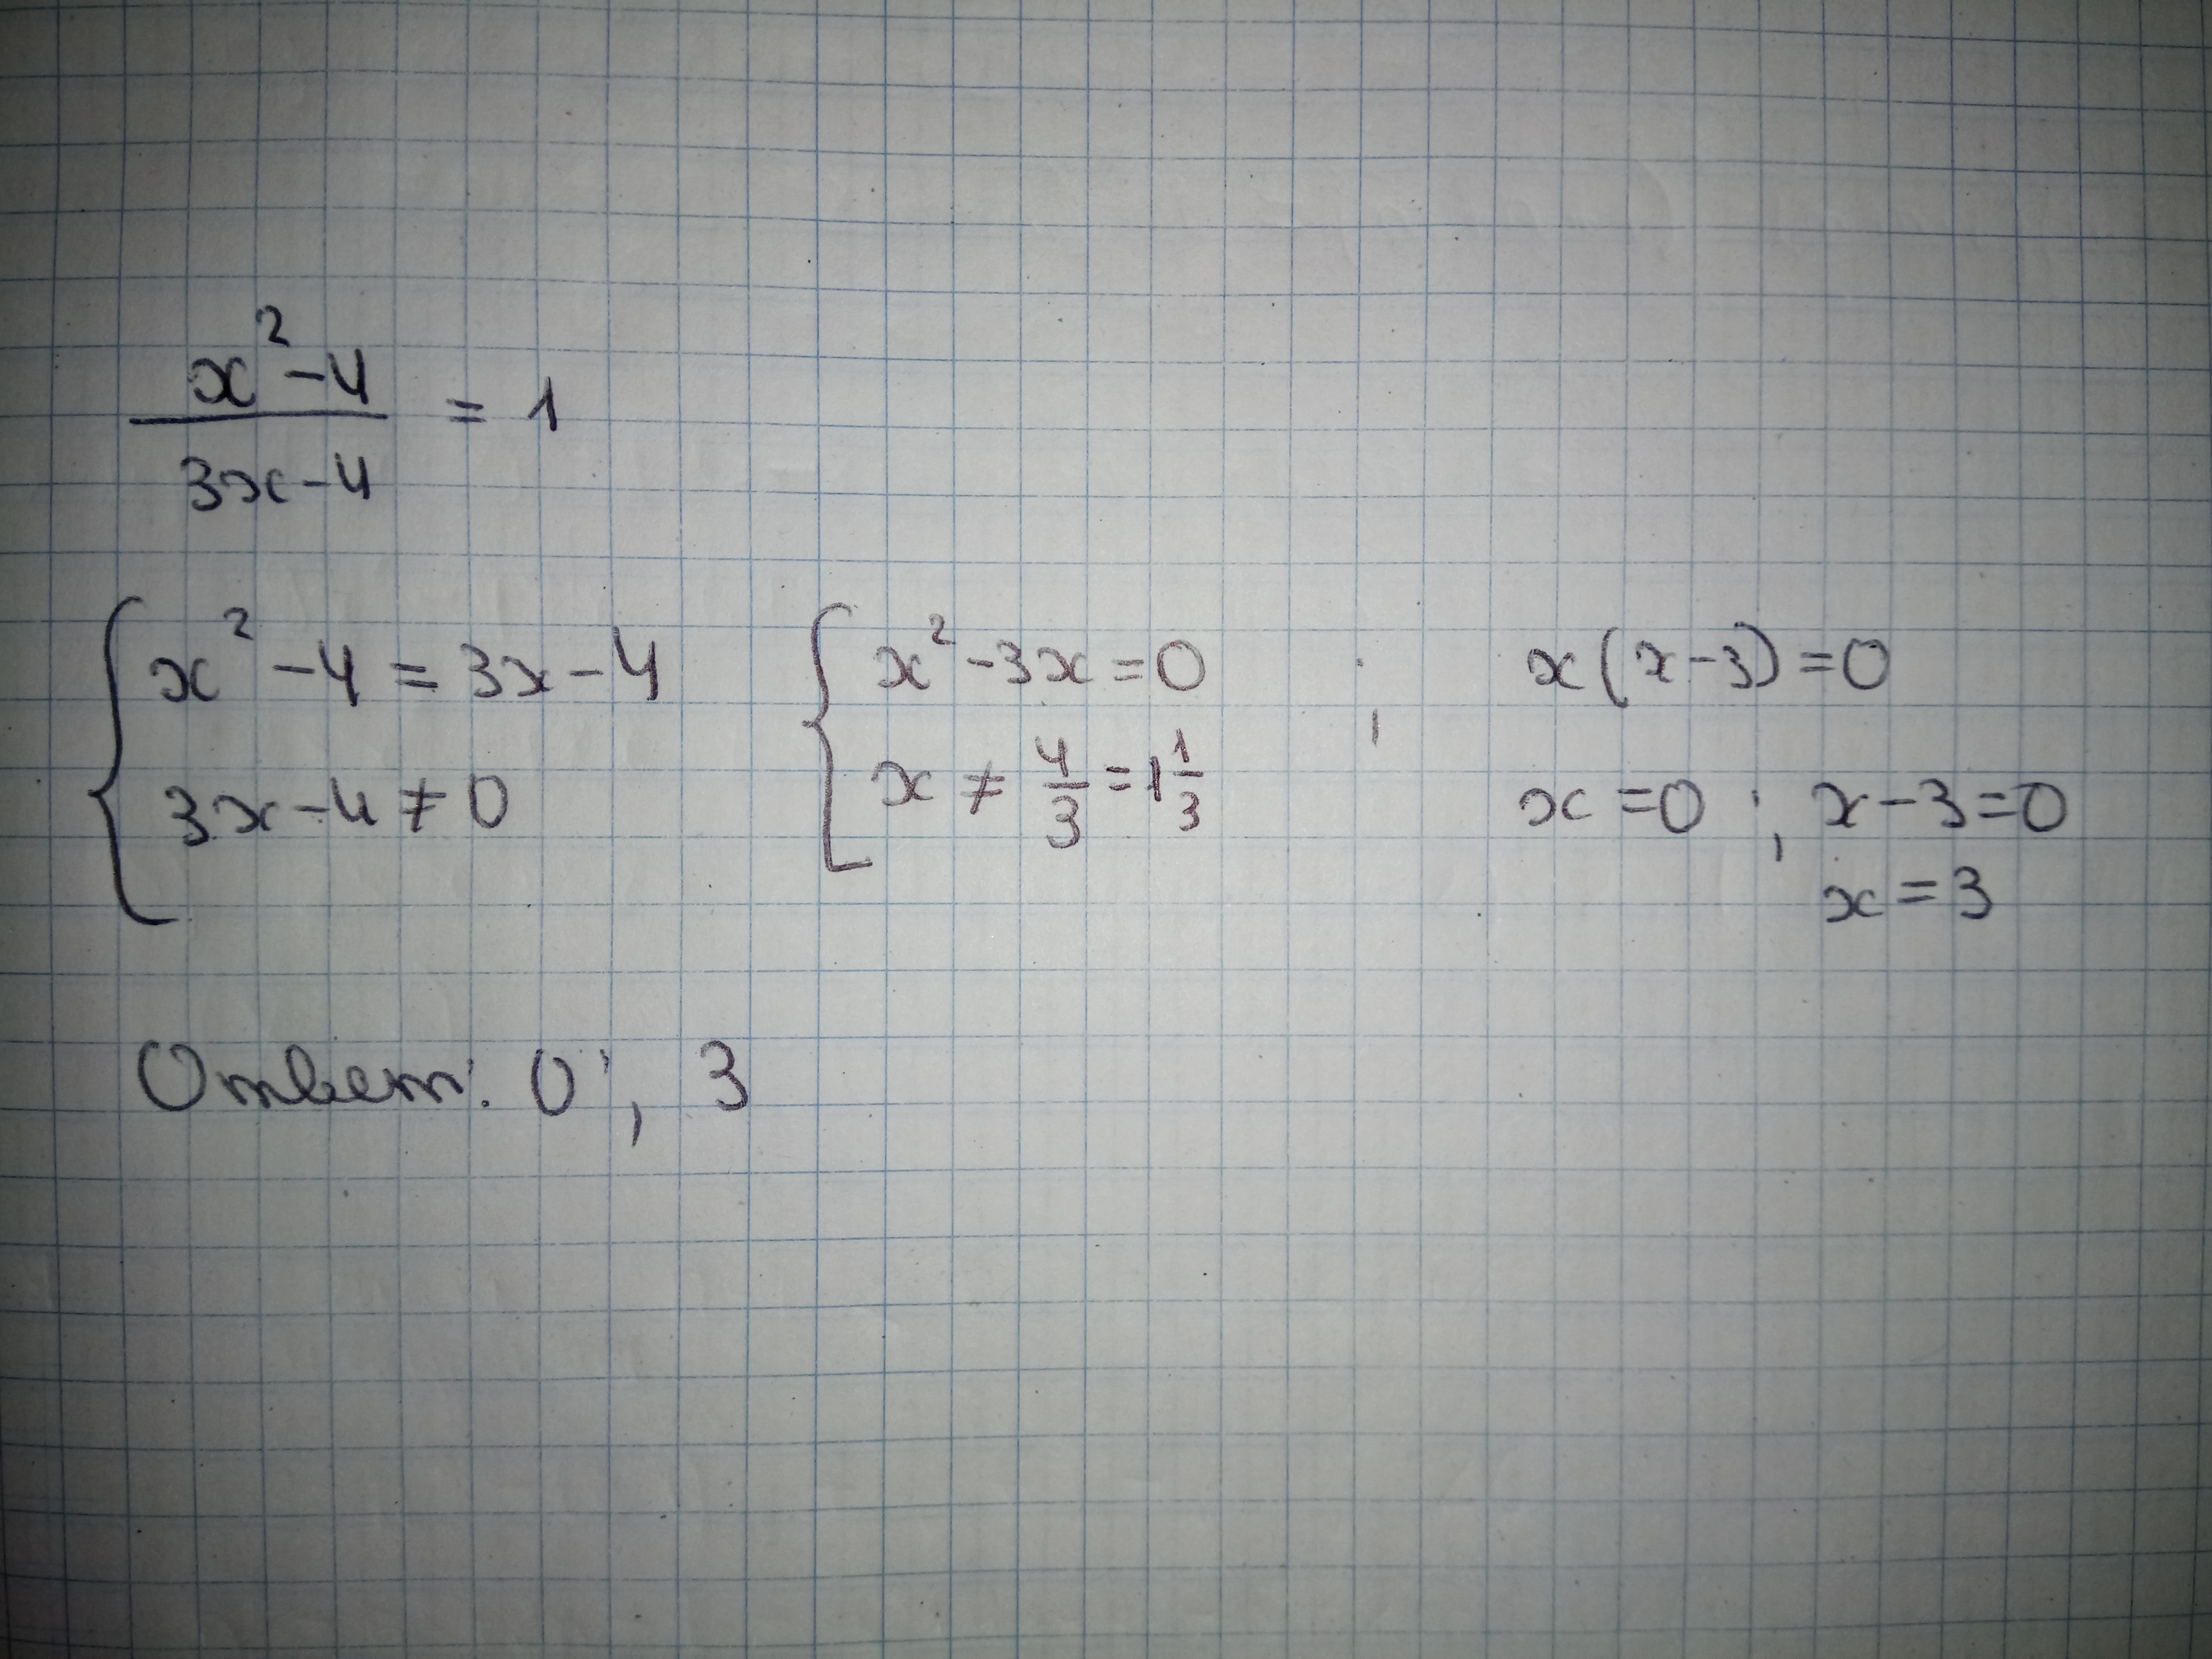 x² - 4 / 3x - 4 = 1
{ x² - 4 = 3x - 4
3x - 4 ≠ 0
{ x² - 3x = 0 ;
x ≠ 4/3 = 1 1/3
x(x - 3) = 0
x = 0 ; x - 3 = 0
x = 3
Ответ: 0 ; 3